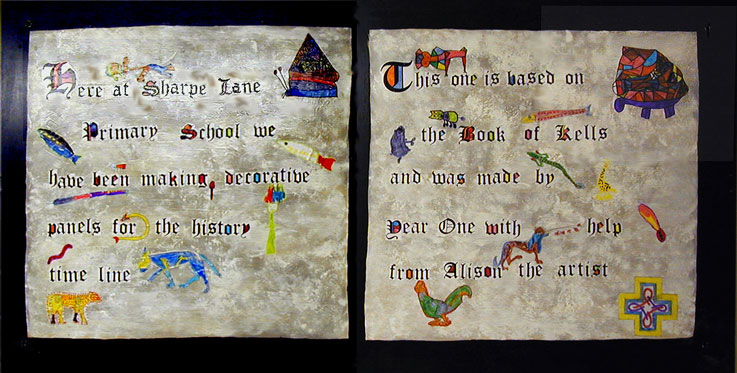 Here at Sharpe Lane
Primary School we
have been making decorative
panels for the history
time line
This one is based on
the Book of Kells
and was made by
Year One with help
from Alison the artist